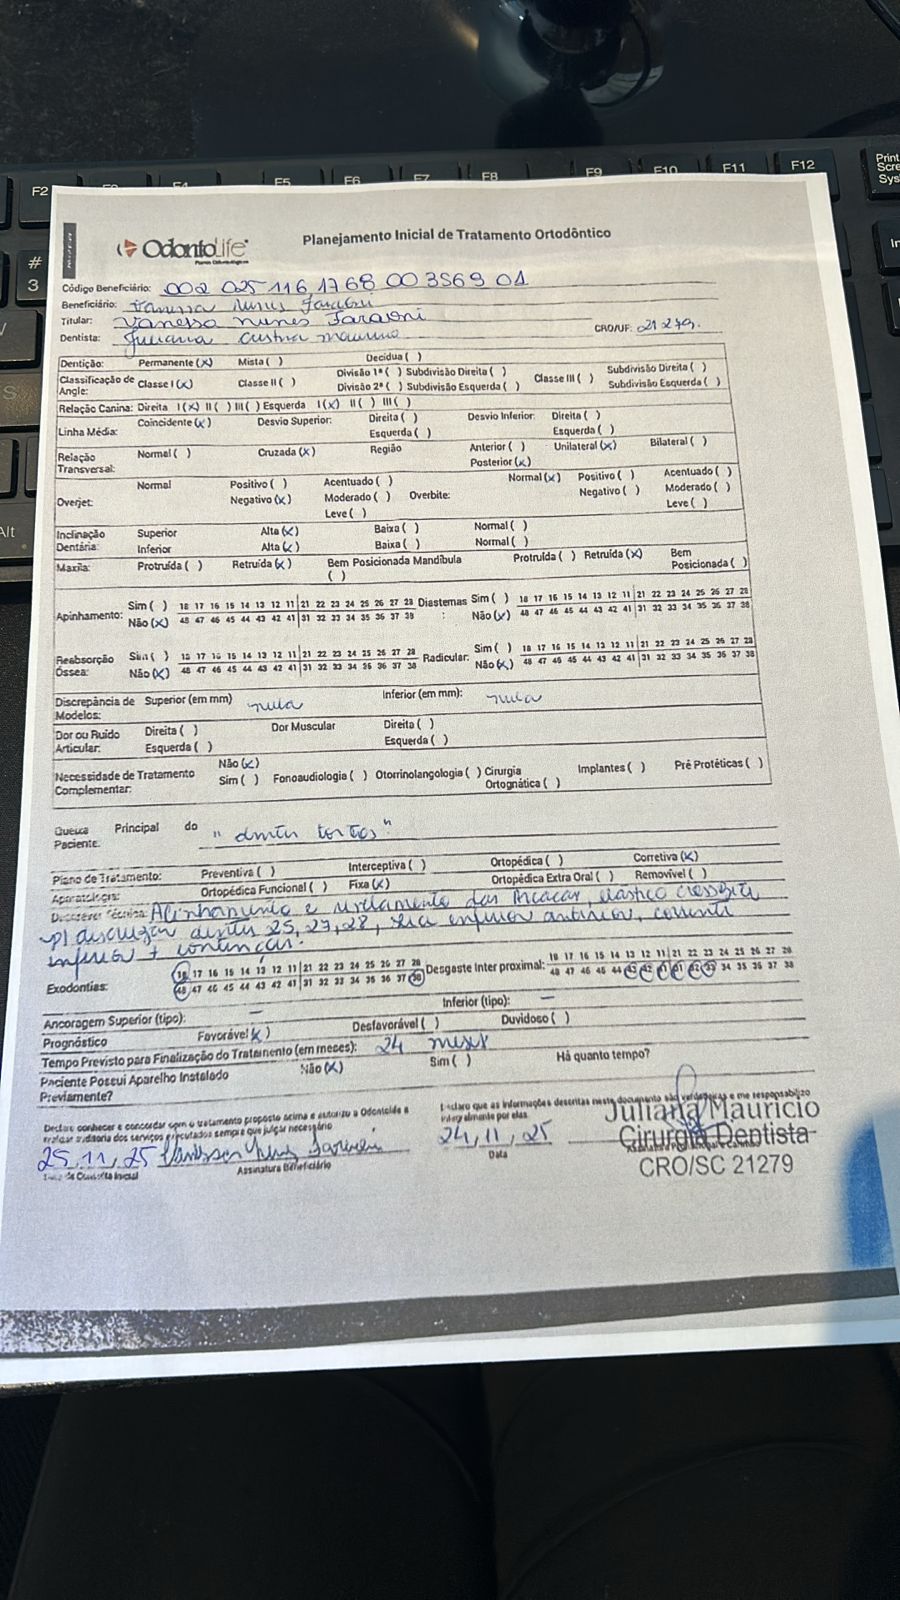 F2
F5
F6
F7
F8
F9
F10
F11
F12
Print
Scre
Sys
#
3
Alt
OdontoLife
Planejamento Inicial de Tratamento Ortodôntico
Código Beneficiário: 002 025 116 1768 00 3569 01
Beneficiário: Vanessa Nunes Faraoni
Titular: Vanessa Nunes Faraoni
Dentista: Juliana Cristina Mauricio CRO/UF: 21279.
Dentição: Permanente (x) Mista ( ) Decídua ( )
Classificação de Angle: Classe I (x) Classe II ( ) Divisão 1ª ( ) Subdivisão Direita ( ) Classe III ( ) Subdivisão Direita ( )
Divisão 2ª ( ) Subdivisão Esquerda ( ) Subdivisão Esquerda ( )
Relação Canina: Direita I (x) II ( ) III ( ) Esquerda I (x) II ( ) III ( )
Linha Média: Coincidente (x) Desvio Superior: Direita ( ) Desvio Inferior: Direita ( )
Esquerda ( ) Esquerda ( )
Relação Transversal: Normal ( ) Cruzada (x) Região Anterior ( ) Unilateral (x) Bilateral ( )
Posterior (x)
Overjet: Normal Positivo ( ) Acentuado ( ) Overbite: Normal (x) Positivo ( ) Acentuado ( )
Negativo (x) Moderado ( ) Negativo ( ) Moderado ( )
Leve ( ) Leve ( )
Inclinação Dentária: Superior Alta (x) Baixa ( ) Normal ( )
Inferior Alta (x) Baixa ( ) Normal ( )
Maxila: Protruída ( ) Retruída (x) Bem Posicionada ( ) Mandíbula Protruída ( ) Retruída (x) Bem Posicionada ( )
Apinhamento: Sim ( ) 18 17 16 15 14 13 12 11 21 22 23 24 25 26 27 28 Diastemas: Sim ( ) 18 17 16 15 14 13 12 11 21 22 23 24 25 26 27 28
Não (x) 48 47 46 45 44 43 42 41 31 32 33 34 35 36 37 38 Não (x) 48 47 46 45 44 43 42 41 31 32 33 34 35 36 37 38
Reabsorção Óssea: Sim ( ) 18 17 16 15 14 13 12 11 21 22 23 24 25 26 27 28 Radicular: Sim ( ) 18 17 16 15 14 13 12 11 21 22 23 24 25 26 27 28
Não (x) 48 47 46 45 44 43 42 41 31 32 33 34 35 36 37 38 Não (x) 48 47 46 45 44 43 42 41 31 32 33 34 35 36 37 38
Discrepância de Modelos: Superior (em mm) nula Inferior (em mm): nula
Dor ou Ruído Articular: Direita ( ) Dor Muscular Direita ( )
Esquerda ( ) Esquerda ( )
Não (x)
Necessidade de Tratamento Complementar: Sim ( ) Fonoaudiologia ( ) Otorrinolangologia ( ) Cirurgia Ortognática ( ) Implantes ( ) Pré Protéticas ( )
Queixa Principal do Paciente: "dentes tortos"
Plano de Tratamento: Preventiva ( ) Interceptiva ( ) Ortopédica ( ) Corretiva (x)
Aparatologia: Ortopédica Funcional ( ) Fixa (x) Ortopédica Extra Oral ( ) Removível ( )
Descrever Técnica: Alinhamento e nivelamento das arcadas, elástico
p/ descruzar dentes 25, 27, 28, inferior anterior, corrente
inferior + contenção.
Exodontias: 18 17 16 15 14 13 12 11 21 22 23 24 25 26 27 28 Desgaste Inter proximal: 18 17 16 15 14 13 12 11 21 22 23 24 25 26 27 28
48 47 46 45 44 43 42 41 31 32 33 34 35 36 37 38 48 47 46 45 44 43 42 41 31 32 33 34 35 36 37 38
Ancoragem Superior (tipo): — Inferior (tipo): —
Prognóstico Favorável (x) Desfavorável ( ) Duvidoso ( )
Tempo Previsto para Finalização do Tratamento (em meses): 24 meses
Paciente Possui Aparelho Instalado Previamente? Não (x) Sim ( ) Há quanto tempo?
Declaro conhecer e concordar com o tratamento proposto acima e autorizo a Odontolife a
realizar auditoria dos serviços executados sempre que julgar necessário
Declaro que as informações descritas neste documento são verdadeiras e me responsabilizo
integralmente por elas.
25, 11, 25 Vanessa Nunes Faraoni
Data da Consulta Inicial Assinatura Beneficiário
24, 11, 25
Data
Juliana Mauricio
Cirurgiã Dentista
CRO/SC 21279